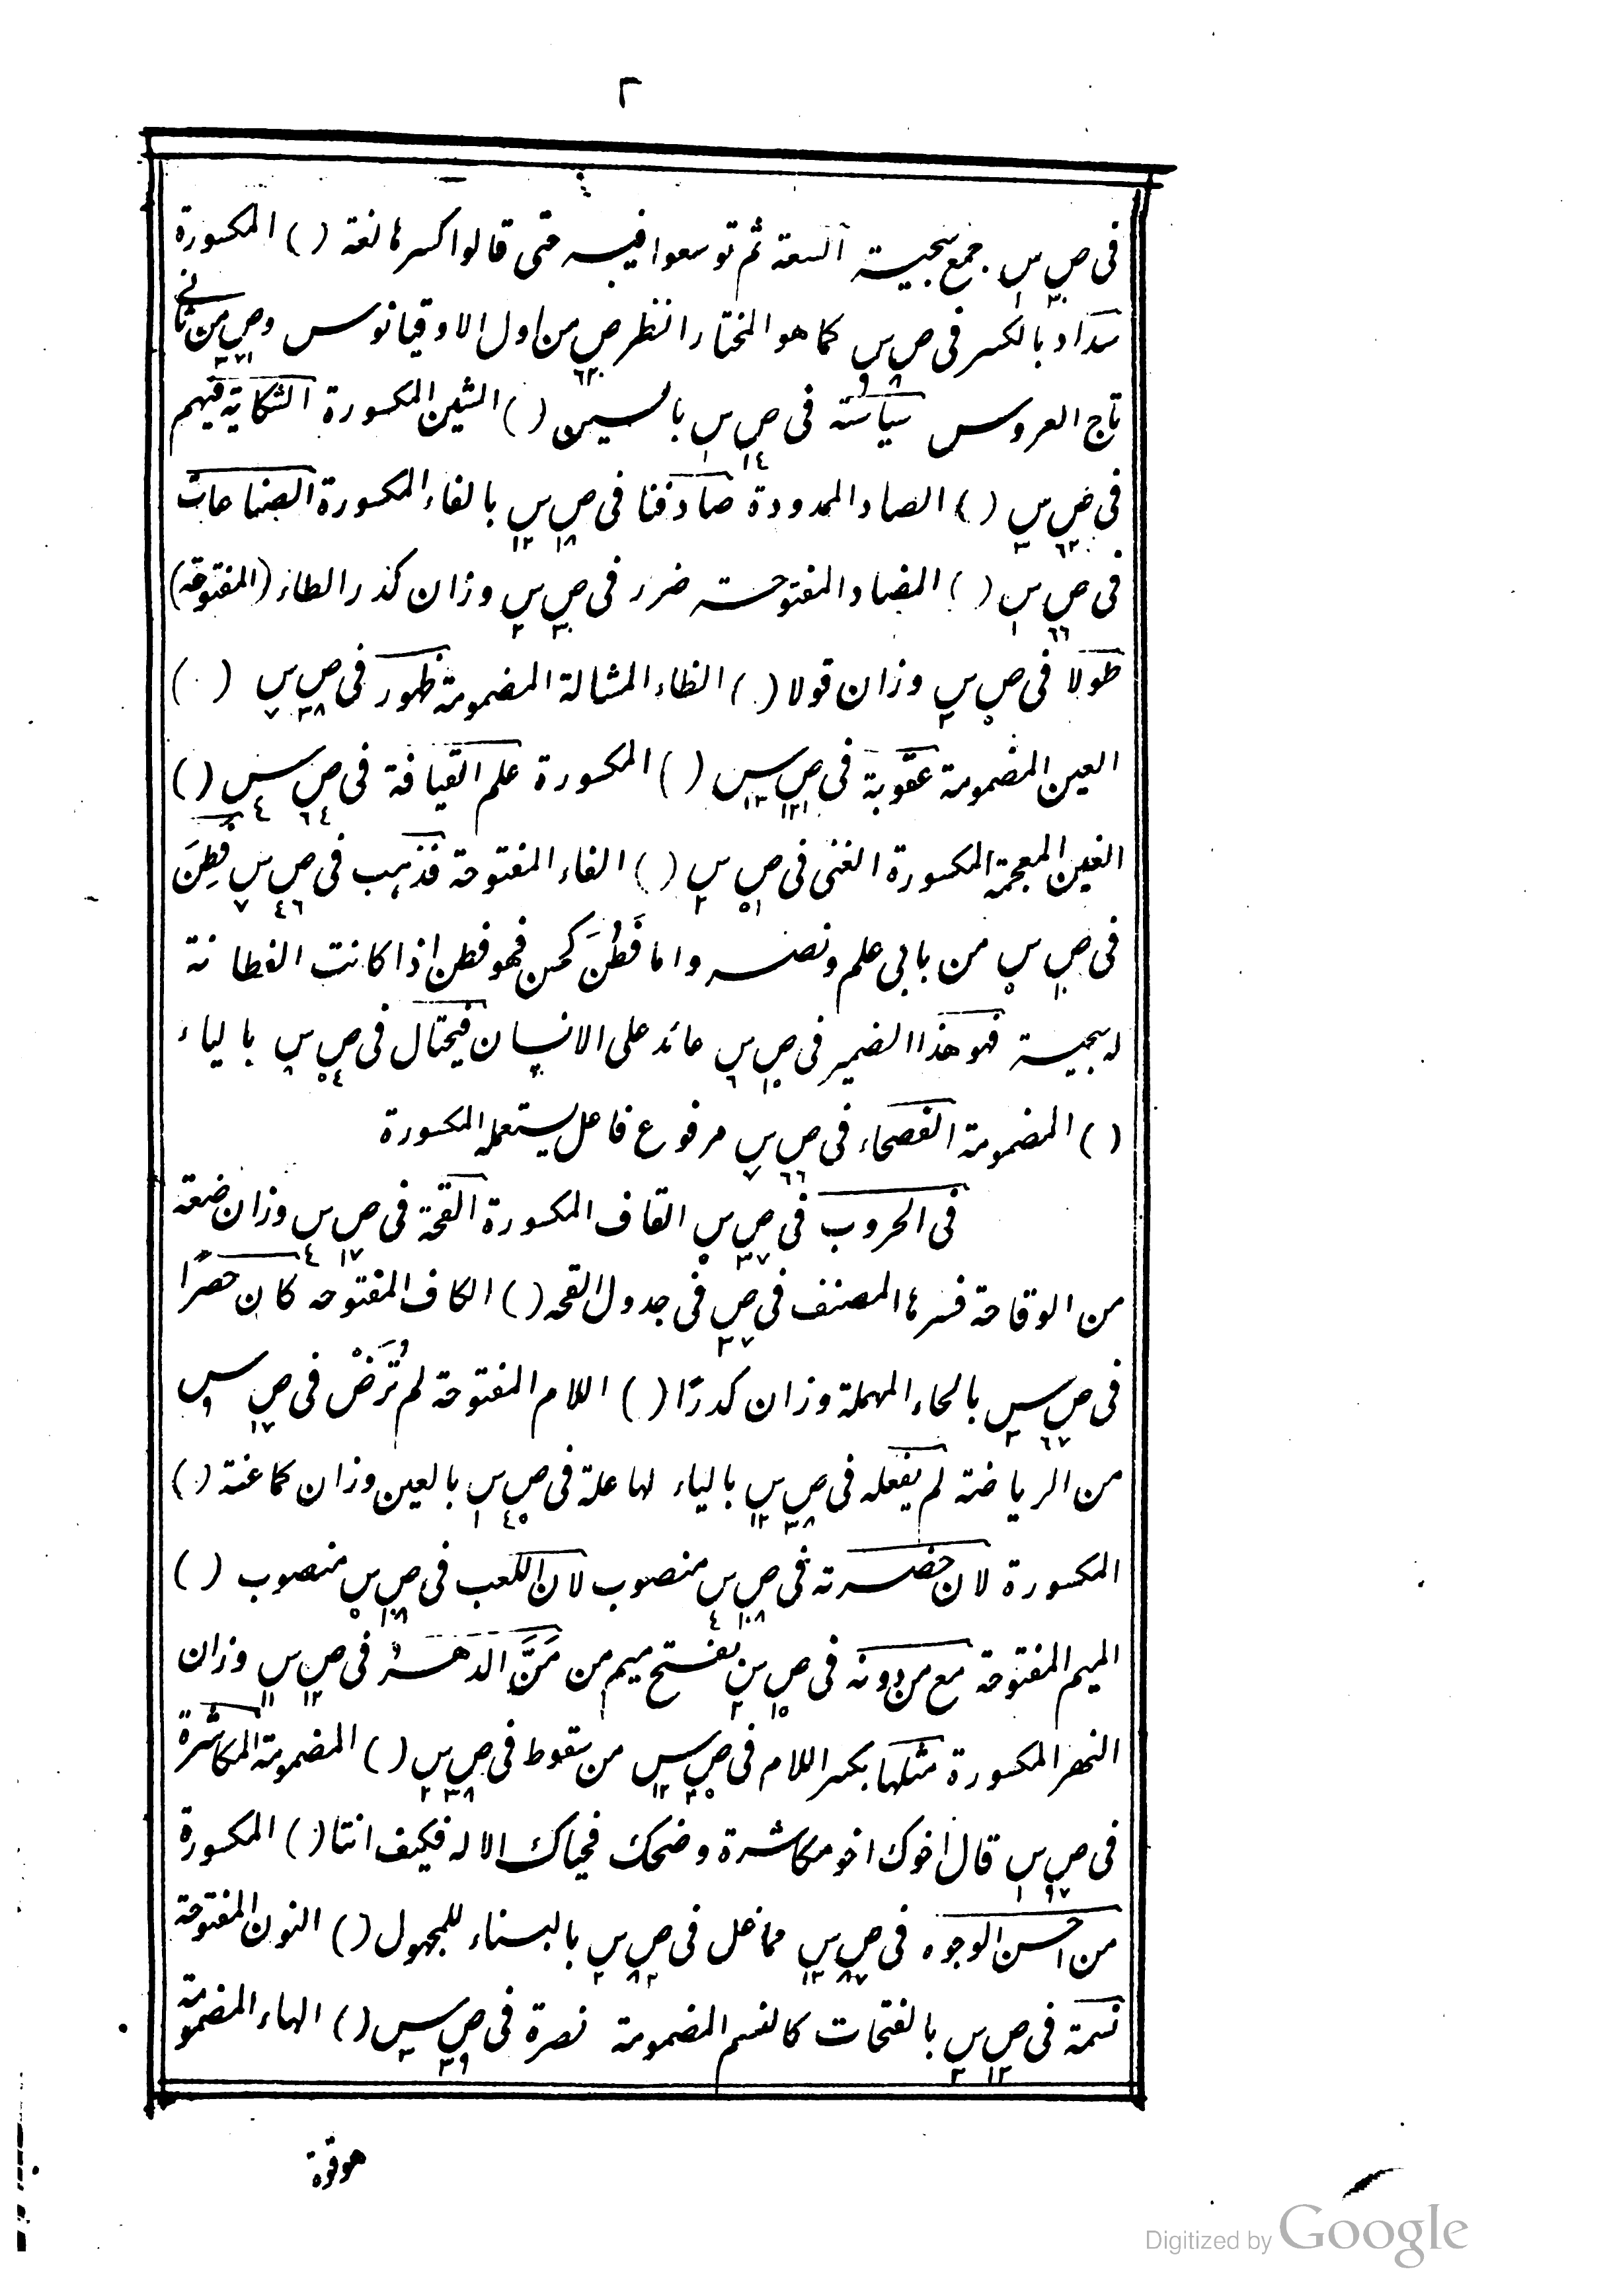 ٢
فى ص س جمع سجية السعة ثم توسعوا فيه حتى قالوا كسرها لغة ( ) المكسورة
سداد بالكسر فى ص س كما هو المختار انظر ص من اول الاوقيانوس وص من ثانى
تاج العروس سياسته فى ص ١٤ س ١ بالسين ( ) الشين المكسورة الشكاية فيهم
فى ص س ( ) الصاد الممدودة صادفنا فى ص ١٨ س ١٢ بالفاء المكسورة الصناعات
فى ص ٦٦ س ١ ( ) الضاد المفتوحة ضرر فى ص س وزان كذر الطاء (المفتوحة)
طولا فى ص س وزان قولا ( ) الظاء المشالة المضمومة ظهور فى ص ٣٨ س ٧ ( )
العين المضمومة عقوبة فى ص س ( ) المكسورة علم القيافة فى ص ٦٤ س ٤ ( )
الغين المعجمة المكسورة الغنى فى ص ٥١ س ٢ ( ) الفاء المفتوحة فذهب فى ص ٤٦ س ٧ فَطِنَ
فى ص س من بابى علم ونصر واما فَطُنَ كحسن فهو فطن اذا كانت الفطانة
له سجية فهو هذا الضمير فى ص س ٦ عائد على الانسان فيحتال فى ص ٥٤ س ٨ بالياء
( ) المضمومة الفصحاء فى ص ٦٦ س ٧ مرفوع فاعل يستعمله المكسورة
فى الحروب فى ص ٣٧ س ٥ القاف المكسورة القحة فى ص ١٧ س ٤ وزان ضعة
من الوقاحة فسرها المصنف فى ص ٣٧ فى جدول القحه ( ) الكاف المفتوحه كان حصرًا
فى ص ٦٧ س ٣ بالحاء المهملة وزان كدرًا ( ) اللام المفتوحة لم تُرَضْ فى ص ١٧ س ٩
من الرياضة لم يفعله فى ص ٣٨ س ١٢ بالياء لها علة فى ص ٤٥ س ١ بالعين وزان كماعنة ( )
المكسورة لان حضرته فى ص ١٠٨ س ٤ منصوب لان اللعب فى ص ١٠٨ س ٥ منصوب ( )
الميم المفتوحة مع من دونه فى ص ١٥ س ٢ بفتح ميم من مَنَّ الدهر فى ص ١٢ س ١١ وزان
النهر المكسورة مثلها بكسر اللام فى ص ٣٥ س ١٢ من سقوط فى ص ٣٨ س ٢ ( ) المضمومة المكاشرة
فى ص ٩٧ س ١ قال اخوك اخو مكاشرة وضحك فحياك الاله فكيف انتا ( ) المكسورة
من احسن الوجوه فى ص ٨٧ س ١٢ مما فعل فى ص ٨٢ س ٢ بالبناء للمجهول ( ) النون المفتوحة
نسمة فى ص ١٢ س ٣ بالفتحات كالنسم المضمومة نصرة فى ص ٣٩ س ٣ ( ) الهاء المضمومة
هوقوة
Digitized by Google